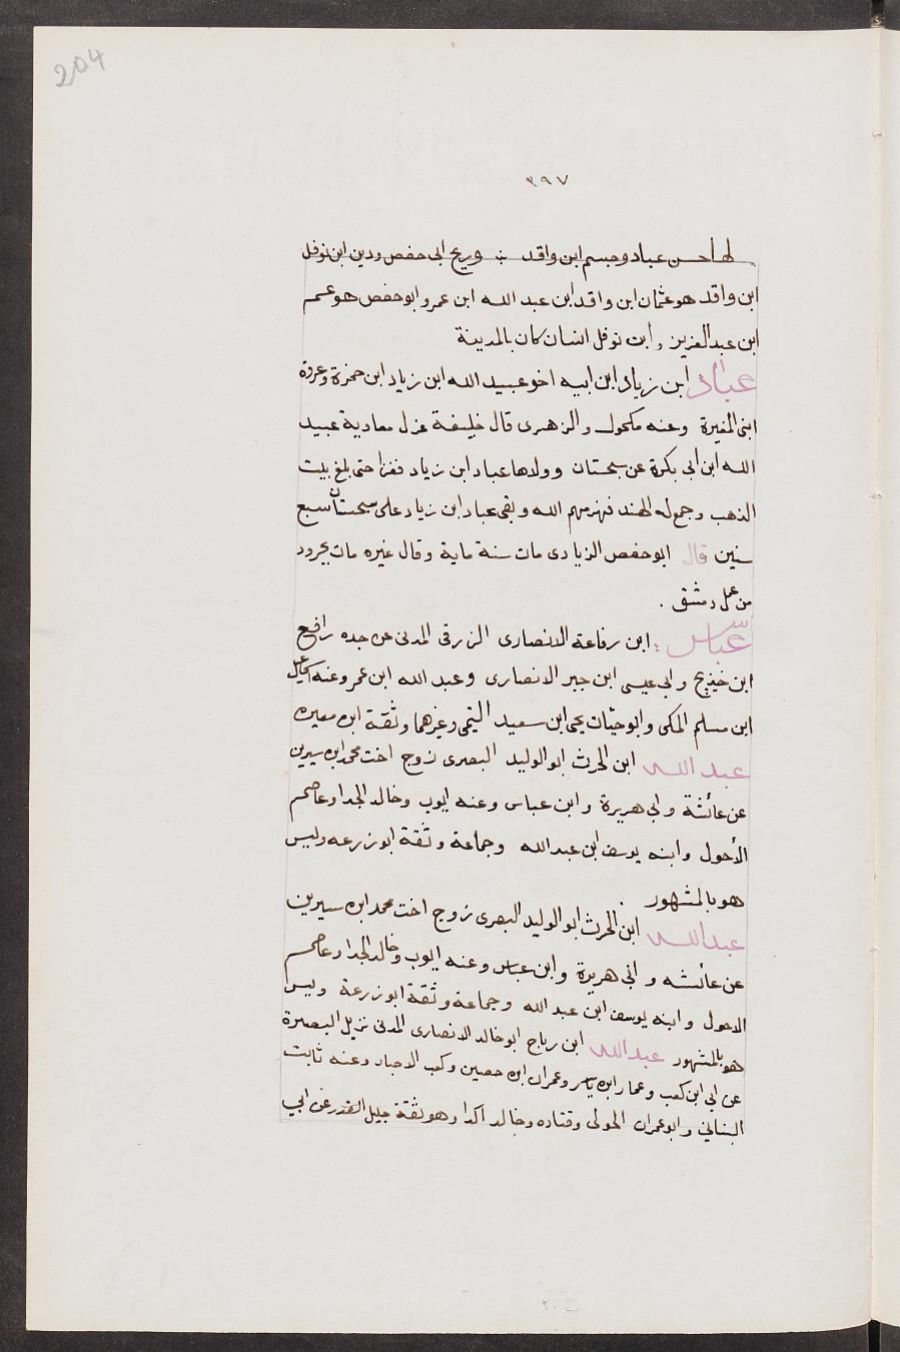 204
٣٩٧
لها حسن عباد وجسم ابن واقد ؞ وريح ابى حفص ودين ابن نوفل
ابن واقد هو عثمان ابن واقد ابن عبد الله ابن عمر وابو حفص هو عمر
ابن عبد العزيز وابن نوفل انسان كان بالمدينة
عباد ابن زياد ابن ابيه اخو عبيد الله ابن زياد ابن حمزة وعروة
ابنى المغيرة وعنه مكحول والزهرى قال خليفة عزل معاوية عبيد
الله ابن ابى بكرة عن سجستان وولدها عباد ابن زياد فغزا حتى بلغ بيت
الذهب وجمع له الهند فهزمهم الله وبقى عباد ابن زياد على سجستان سبع
سنين قال ابو حفص الزيادى مات سنة ماية وقال غيره مات بجرود
من عمل دمشق .
عباس : ابن رفاعة الانصارى الزرقى المدنى عن جده رافع
ابن خديج وابى عيسى ابن جبر الانصارى وعبد الله ابن عمر وعنه اسماعيل
ابن مسلم المكى وابو حيان يحيى ابن سعيد التيمى وغيرهما وثقة ابن معين
عبد الله ابن الحرث ابو الوليد البصرى زوج اخت محمد ابن سيرين
عن عائشة وابى هريرة وابن عباس وعنه ايوب وخالد الجدا وعاصم
الأحول وابنه يوسف ابن عبد الله وجماعة وثقة ابو زرعه وليس
هو بالمشهور .
عبد الله ابن الحرث ابو الوليد البصرى زوج اخت محمد ابن سيرين
عن عائشه وابى هريرة وابن عباس وعنه ايوب وخالد الجدا وعاصم
الاحول وابنه يوسف ابن عبد الله وجماعة وثقة ابو زرعة وليس
هو بالمشهور عبد الله ابن رباح ابو خالد الانصارى المدنى نزيل البصرة
عن ابى ابن كعب وعمار ابن ياسر وعمران ابن حصين وكعب الاحبار وعنه ثابت
البنانى وابو عمران الجولى وقتاده وخالد اكدا وهو ثقة جليل القدر عن ابى